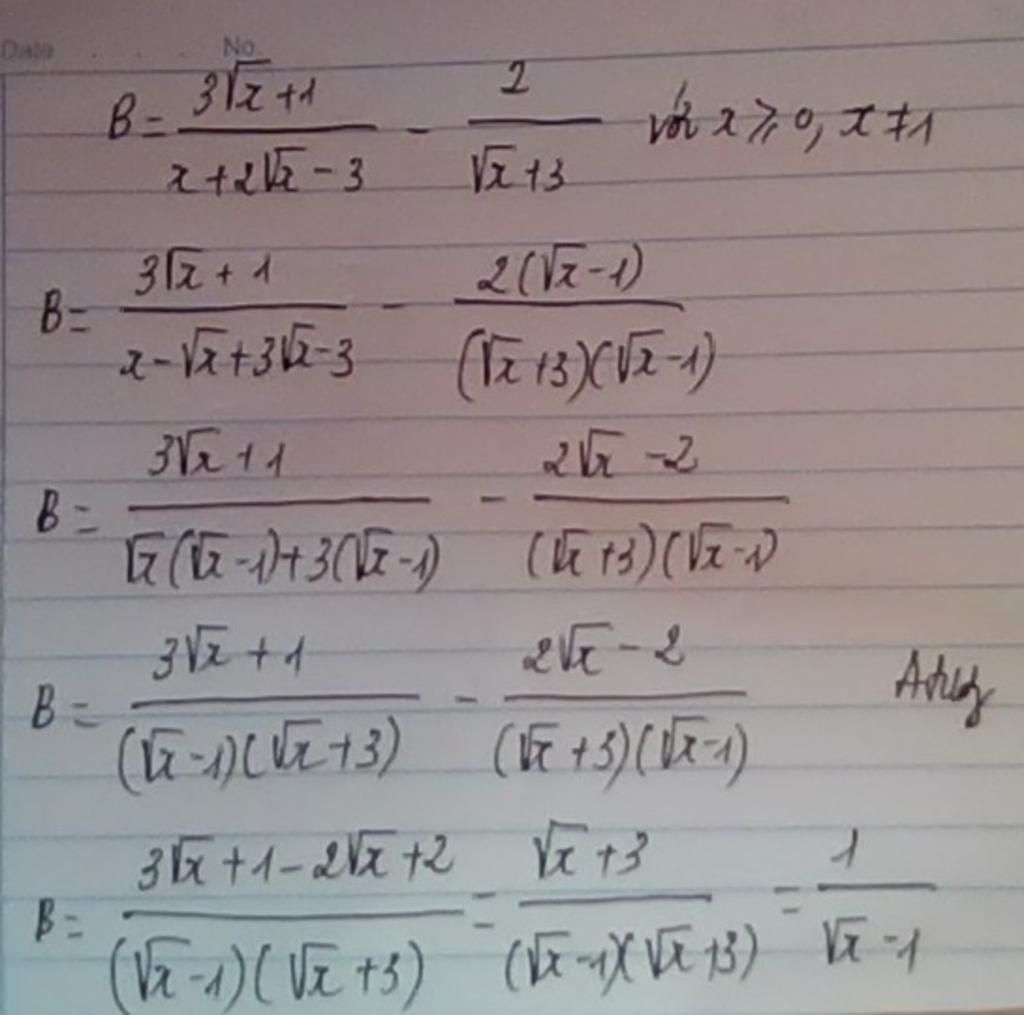 Date . . . No.
B = \frac{3\sqrt{x}+1}{x+2\sqrt{x}-3} - \frac{2}{\sqrt{x}+3} với x ≥ 0, x ≠ 1
B = \frac{3\sqrt{x}+1}{x-\sqrt{x}+3\sqrt{x}-3} - \frac{2(\sqrt{x}-1)}{(\sqrt{x}+3)(\sqrt{x}-1)}
B = \frac{3\sqrt{x}+1}{\sqrt{x}(\sqrt{x}-1)+3(\sqrt{x}-1)} - \frac{2\sqrt{x}-2}{(\sqrt{x}+3)(\sqrt{x}-1)}
B = \frac{3\sqrt{x}+1}{(\sqrt{x}-1)(\sqrt{x}+3)} - \frac{2\sqrt{x}-2}{(\sqrt{x}+3)(\sqrt{x}-1)}
B = \frac{3\sqrt{x}+1-2\sqrt{x}+2}{(\sqrt{x}-1)(\sqrt{x}+3)} = \frac{\sqrt{x}+3}{(\sqrt{x}-1)(\sqrt{x}+3)} = \frac{1}{\sqrt{x}-1}